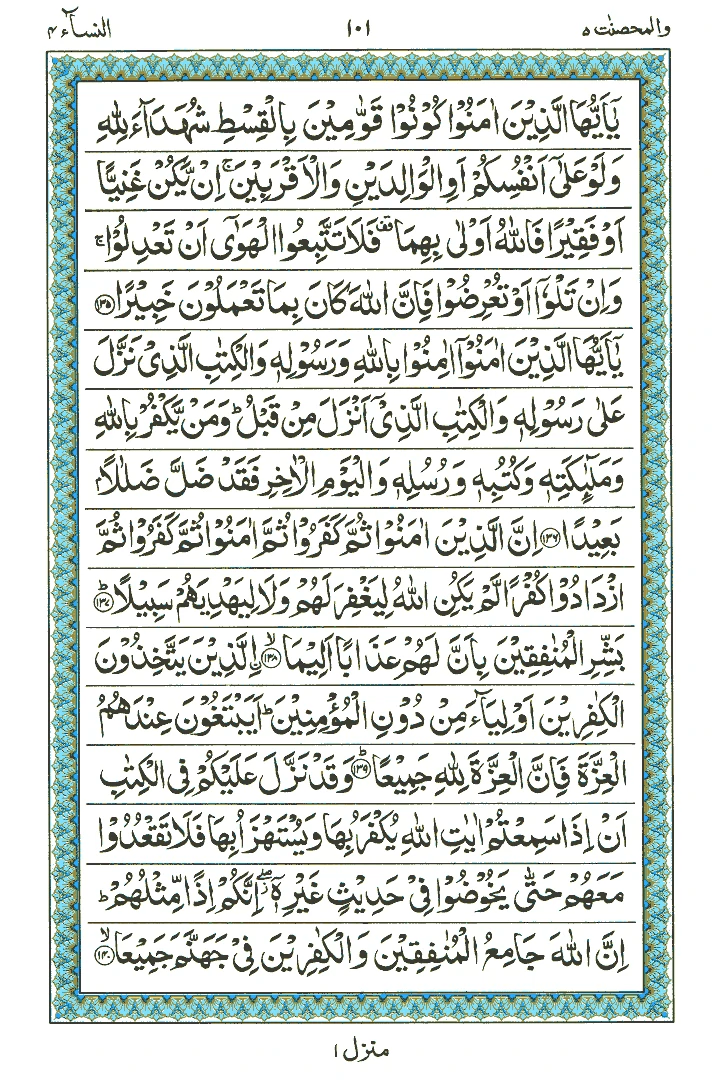 والمحصنت ٥ ١٠١ النسآء ٤
يٰۤاَيُّهَا الَّذِيْنَ اٰمَنُوْا كُوْنُوْا قَوّٰمِيْنَ بِالْقِسْطِ شُهَدَآءَ لِلّٰهِ
وَلَوْ عَلٰٓى اَنْفُسِكُمْ اَوِ الْوَالِدَيْنِ وَالْاَقْرَبِيْنَ ۚ اِنْ يَّكُنْ غَنِيًّا
اَوْ فَقِيْرًا فَاللّٰهُ اَوْلٰى بِهِمَا ۫ فَلَا تَتَّبِعُوا الْهَوٰٓى اَنْ تَعْدِلُوْا ۚ
وَاِنْ تَلْوٗۤا اَوْ تُعْرِضُوْا فَاِنَّ اللّٰهَ كَانَ بِمَا تَعْمَلُوْنَ خَبِيْرًا ۝١٣٥
يٰۤاَيُّهَا الَّذِيْنَ اٰمَنُوْۤا اٰمِنُوْا بِاللّٰهِ وَرَسُوْلِهٖ وَالْكِتٰبِ الَّذِيْ نَزَّلَ
عَلٰى رَسُوْلِهٖ وَالْكِتٰبِ الَّذِيْۤ اَنْزَلَ مِنْ قَبْلُ ؕ وَمَنْ يَّكْفُرْ بِاللّٰهِ
وَمَلٰٓئِكَتِهٖ وَكُتُبِهٖ وَرُسُلِهٖ وَالْيَوْمِ الْاٰخِرِ فَقَدْ ضَلَّ ضَلٰلًاۢ
بَعِيْدًا ۝١٣٦ اِنَّ الَّذِيْنَ اٰمَنُوْا ثُمَّ كَفَرُوْا ثُمَّ اٰمَنُوْا ثُمَّ كَفَرُوْا ثُمَّ
ازْدَادُوْا كُفْرًا لَّمْ يَكُنِ اللّٰهُ لِيَغْفِرَ لَهُمْ وَلَا لِيَهْدِيَهُمْ سَبِيْلًا ؕ۝١٣٧
بَشِّرِ الْمُنٰفِقِيْنَ بِاَنَّ لَهُمْ عَذَابًا اَلِيْمَا ۙ۝١٣٨ ۨالَّذِيْنَ يَتَّخِذُوْنَ
الْكٰفِرِيْنَ اَوْلِيَآءَ مِنْ دُوْنِ الْمُؤْمِنِيْنَ ؕ اَيَبْتَغُوْنَ عِنْدَهُمُ
الْعِزَّةَ فَاِنَّ الْعِزَّةَ لِلّٰهِ جَمِيْعًا ؕ۝١٣٩ وَقَدْ نَزَّلَ عَلَيْكُمْ فِى الْكِتٰبِ
اَنْ اِذَا سَمِعْتُمْ اٰيٰتِ اللّٰهِ يُكْفَرُ بِهَا وَيُسْتَهْزَاُ بِهَا فَلَا تَقْعُدُوْا
مَعَهُمْ حَتّٰى يَخُوْضُوْا فِيْ حَدِيْثٍ غَيْرِهٖۤ ۖؗ اِنَّكُمْ اِذًا مِّثْلُهُمْ ؕ
اِنَّ اللّٰهَ جَامِعُ الْمُنٰفِقِيْنَ وَالْكٰفِرِيْنَ فِيْ جَهَنَّمَ جَمِيْعَا ۙ۝١٤٠
منزل ١